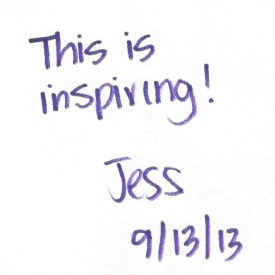 This is
inspiring!
Jess
9/13/13